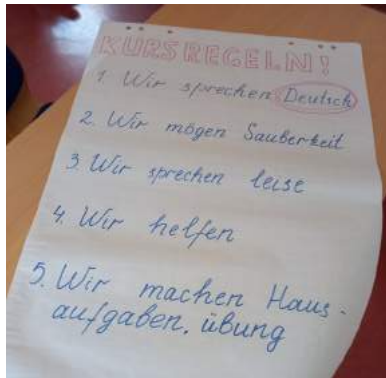 KURSREGELN!
1. Wir sprechen Deutsch
2. Wir mögen Sauberkeit
3. Wir sprechen leise
4. Wir helfen
5. Wir machen Haus-
aufgaben, übung